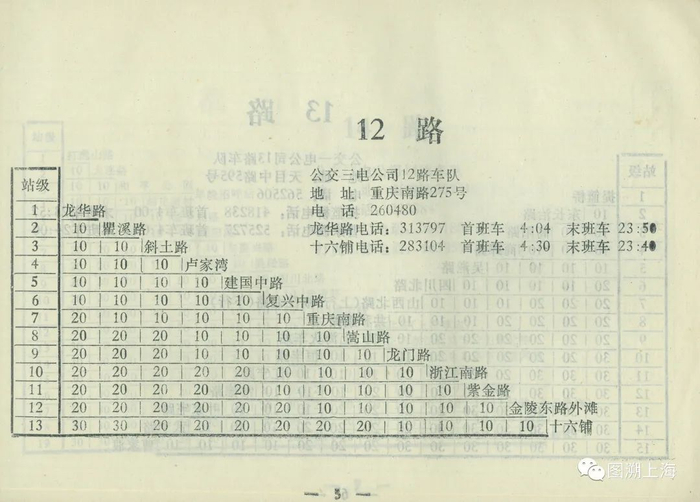 12 路
公交三电公司12路车队
地 址 重庆南路275号
电 话 260480
龙华路电话：313797 首班车 4:04 末班车 23:50
十六铺电话：283104 首班车 4:30 末班车 23:40
站级
1 龙华路
2 10 瞿溪路
3 10 10 斜土路
4 10 10 10 卢家湾
5 10 10 10 10 建国中路
6 10 10 10 10 10 复兴中路
7 20 10 10 10 10 10 重庆南路
8 20 20 20 10 10 10 10 嵩山路
9 20 20 20 10 10 10 10 10 龙门路
10 20 20 20 20 10 10 10 10 10 浙江南路
11 20 20 20 20 20 10 10 10 10 10 紫金路
12 20 20 20 20 20 20 10 10 10 10 10 金陵东路外滩
13 30 30 20 20 20 20 20 10 10 10 10 10 十六铺
— 5 —
图溯上海